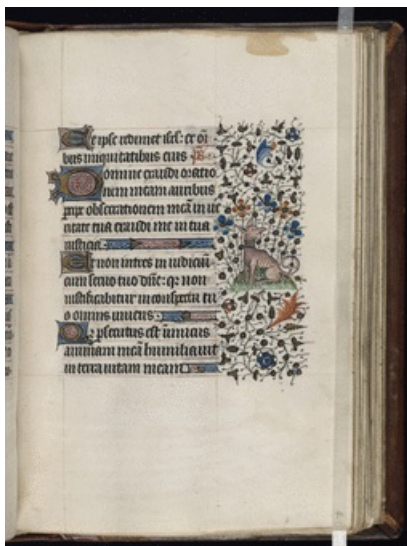 Et ipse redimet isrl: ex oĩ
bus iniquitatibus eius ps
Domine exaudi oratio
nem meam auribus
percipe obsecrationem meã in ue
ritate tua exaudi me in tua
iusticia.
Et non intres in iudiciũ
cum seruo tuo dñe: qr non
iustificabitur in conspectu tu
o omnis uiuens.
Quia persecutus est inimicus
animam meã humiliauit
in terra uitam meam